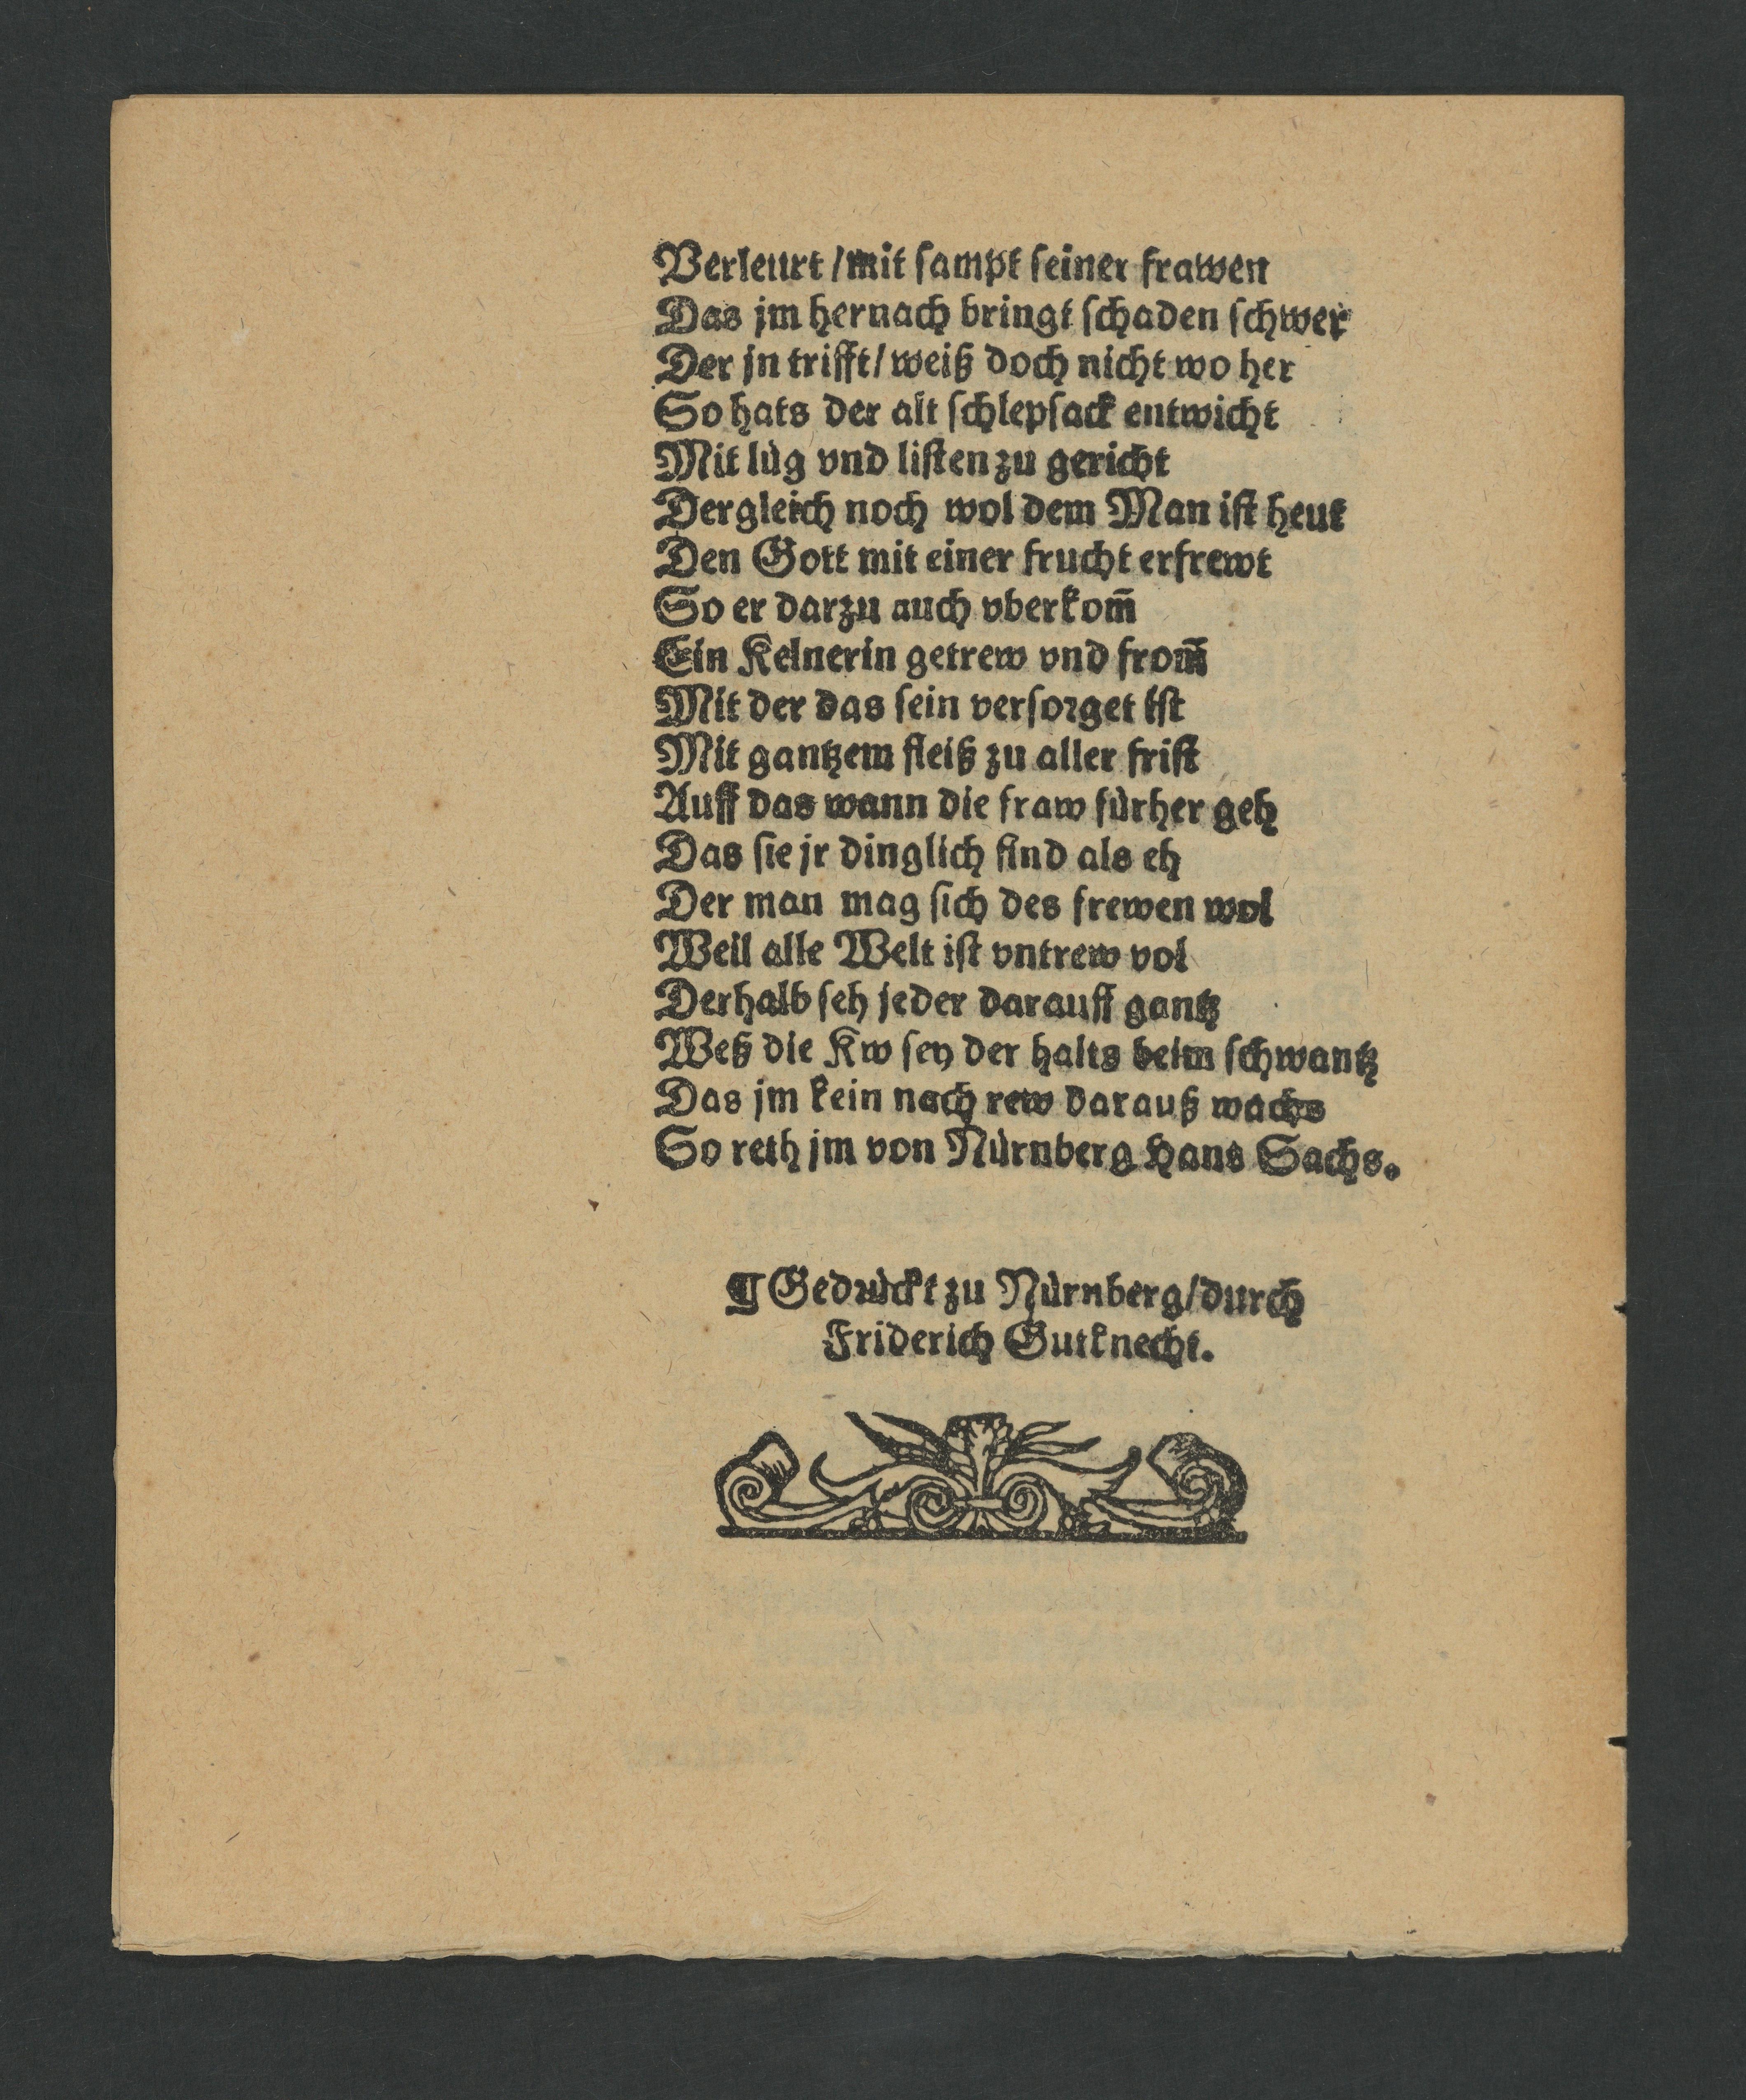 Verleurt /mit ſampt ſeiner frawen
Das jm hernach bringt ſchaden ſchwer
Der jn trifft/ weiß doch nicht wo her
So hats der alt ſchlepſack entwicht
Mit lüg vnd liſten zu gericht
Dergleich noch wol dem Man iſt heut
Den Gott mit einer frucht erfrewt
So er darzu auch vberkom̃
Ein Kelnerin getrew vnd from̃
Mit der das ſein verſorget iſt
Mit gantzem fleiß zu aller friſt
Auff das wann die fraw fürher geh
Das ſie jr dinglich find als eh
Der man mag ſich des frewen wol
Weil alle Welt iſt vntrew vol
Derhalb ſeh jeder darauff gantz
Weß die Kw ſey der halts beim ſchwantz
Das jm kein nach rew darauß wachs
So reth jm von Nürnberg Hans Sachs.
¶ Gedrückt zu Nürnberg/durch
Friderich Gutknecht.